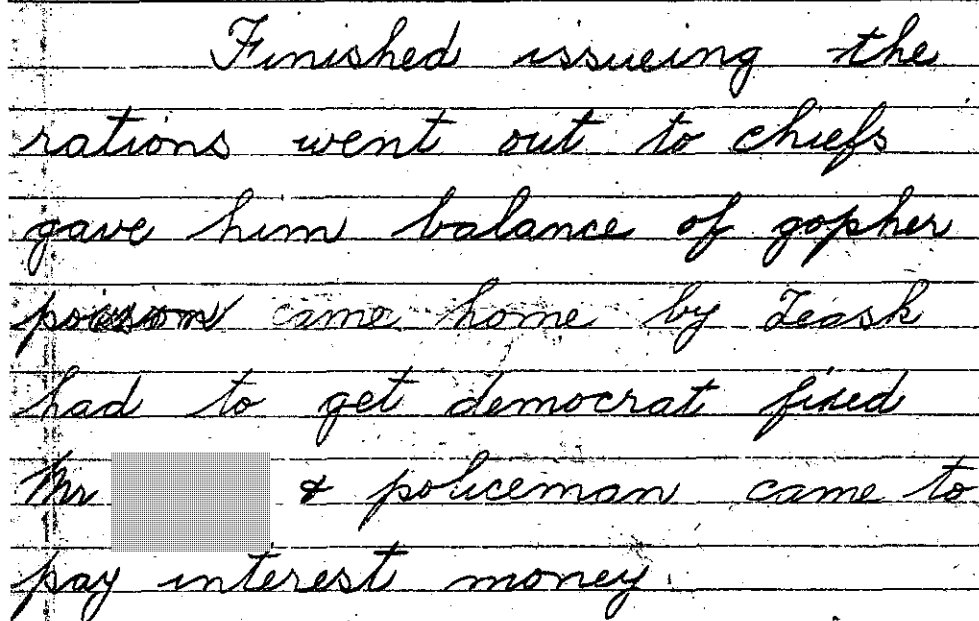 Finished issueing the
rations went out to chiefs
gave him balance of gopher
poison came home by Leask
had to get democrat fixed
Mr & policeman came to
pay interest money.